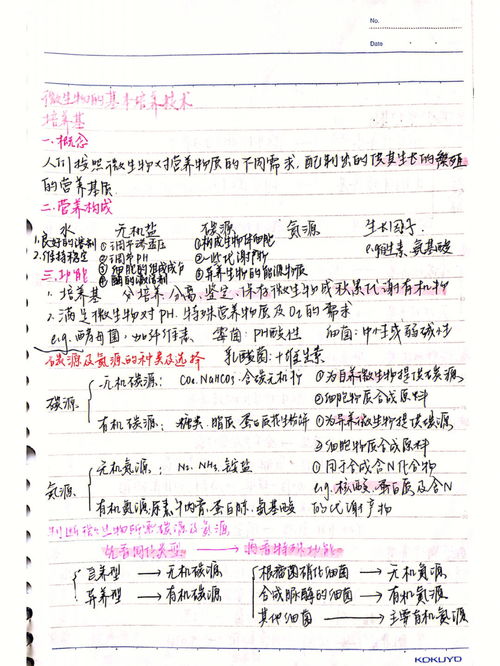 No.
Date
微生物的基本培养技术
培养基
一.概念
人们按照微生物对营养物质的不同需求,配制出的供其生长的繁殖
的营养基质.
二.营养构成
水 无机盐 碳源 氮源 生长因子
1.良好的溶剂 ①调节渗透压 ①构成生物体细胞 e.g维生素.氨基酸
2.维持稳定 ②调节PH ②一些代谢产物
三.功能 ③细胞的组成成分 ③异养生物的能源物质
④酶的激活剂
1.培养基 分培养.分离.鉴定.保存微生物或积累代谢有机物
2.满足微生物对PH.特殊营养物质及O₂的需求
e.g.酵母菌:加纤维素. 霉菌:PH酸性 细菌:中性或弱碱性
碳源及氮源的种类及选择 乳酸菌:+维生素
碳源 无机碳源: CO₂.NaHCO₃.含碳无机物 ①为自养微生物提供碳源
②细胞物质合成原料
有机碳源: 糖类.脂质.蛋白质花生粉饼 ①为异养微生物提供碳源
②细胞物质合成原料
氮源 无机氮源: N₂.NH₃.铵盐 ①用于合成含N化合物
e.g.核酸.蛋白质及含N
有机氮源:尿素.牛肉膏.蛋白胨.氨基酸 的代谢产物
判断微生物所需碳源及氮源
先看同化类型 → 再看特殊功能
自养型 → 无机碳源 根瘤菌硝化细菌 → 无机氮源
异养型 → 有机碳源 合成脲酶的细菌 → 有机氮源
其他细菌 → 主要有机氮源
KOKUYO